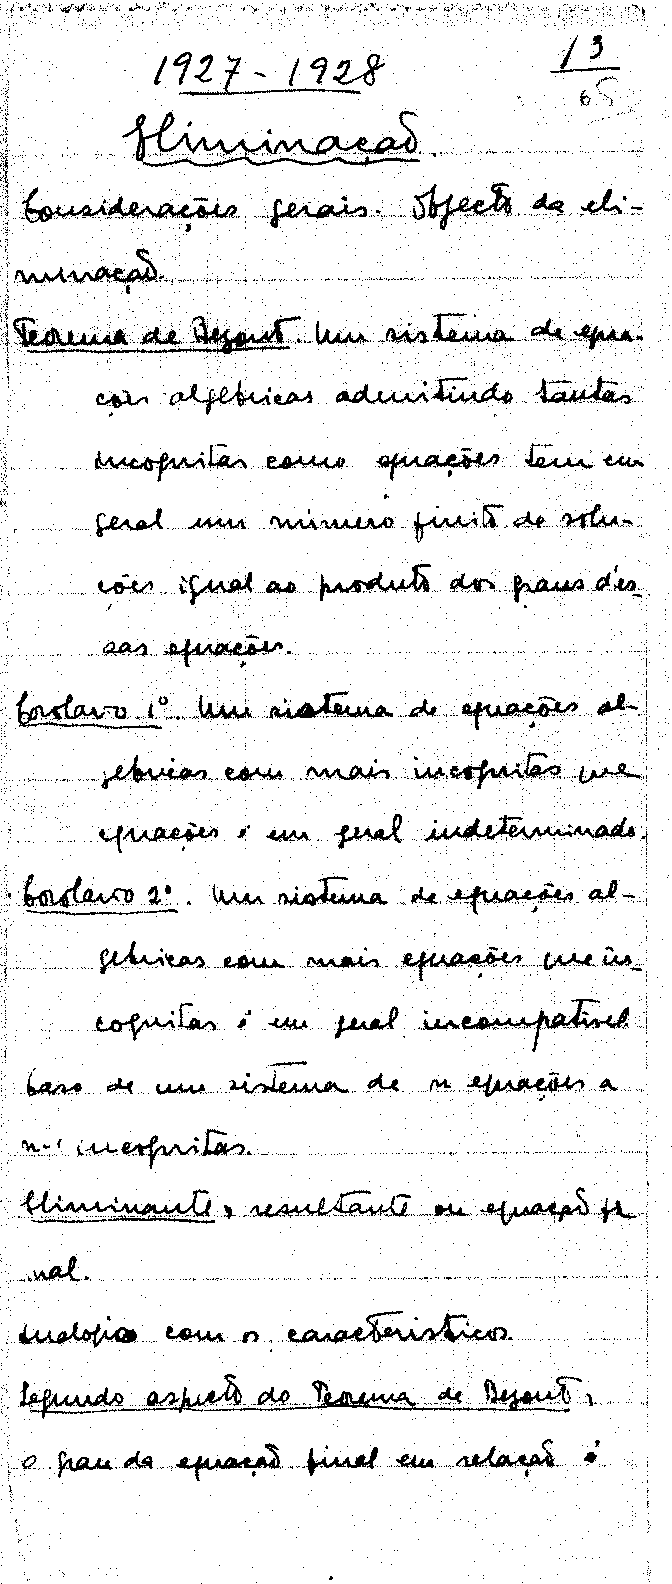 1927-1928
13
65
Eliminação.
Considerações gerais. Objecto da eli-
minação.
Teorema de Bezout. Um sistema de equa-
ções algébricas admitindo tantas
incognitas como equações tem em
geral um número finito de solu-
ções igual ao produto dos graus des-
sas equações.
Corolario 1º. Um sistema de equações al-
gebricas com mais incognitas que
equações é em geral indeterminado.
Corolario 2º. Um sistema de equações al-
gebricas com mais equações que in-
cognitas é em geral incompativel
Caso de um sistema de n equações a
n-1 incognitas.
Eliminante, resultante ou equação fi
nal.
Analogia com os caracteristicos.
Segundo aspecto do Teorema de Bezout,
o grau da equação final em relação é